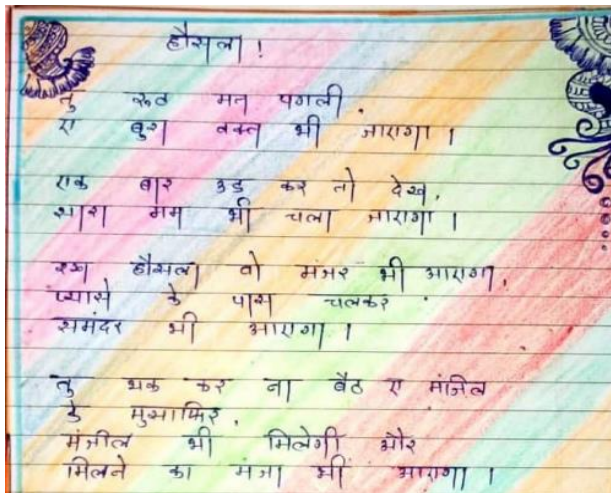 हौसला !
तु रूठ मत पगली
ए बुरा वक्त भी जाएगा ।
एक बार उड कर तो देख,
सारा गम भी चला जाएगा ।
रख हौसला वो मंजर भी आएगा,
प्यासे के पास चलकर
समंदर भी आएगा ।
तु थक कर ना बैठ ए मंजिल
के मुसाफिर,
मंजील भी मिलेगी और
मिलने का मजा भी आएगा ।